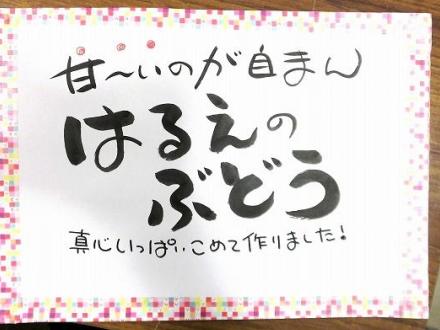 甘〜いのが自まん
はるえの
ぶどう
真心いっぱいこめて作りました!